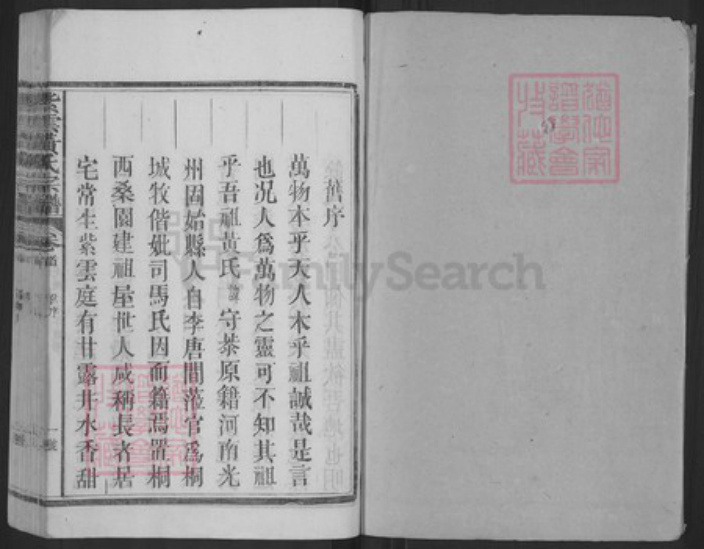 舊序
萬物本乎天人本乎祖誠哉是言
也况人爲萬物之靈可不知其祖
乎吾祖黃氏 守恭原籍河南光
州固始縣人自李唐間蒞官爲桐
城牧偕妣司馬氏因而籍焉置桐
西桑園建祖屋世人咸稱長者居
宅常生紫雲庭有甘露井水香甜
紫雲黃氏宗譜
FamilySearch